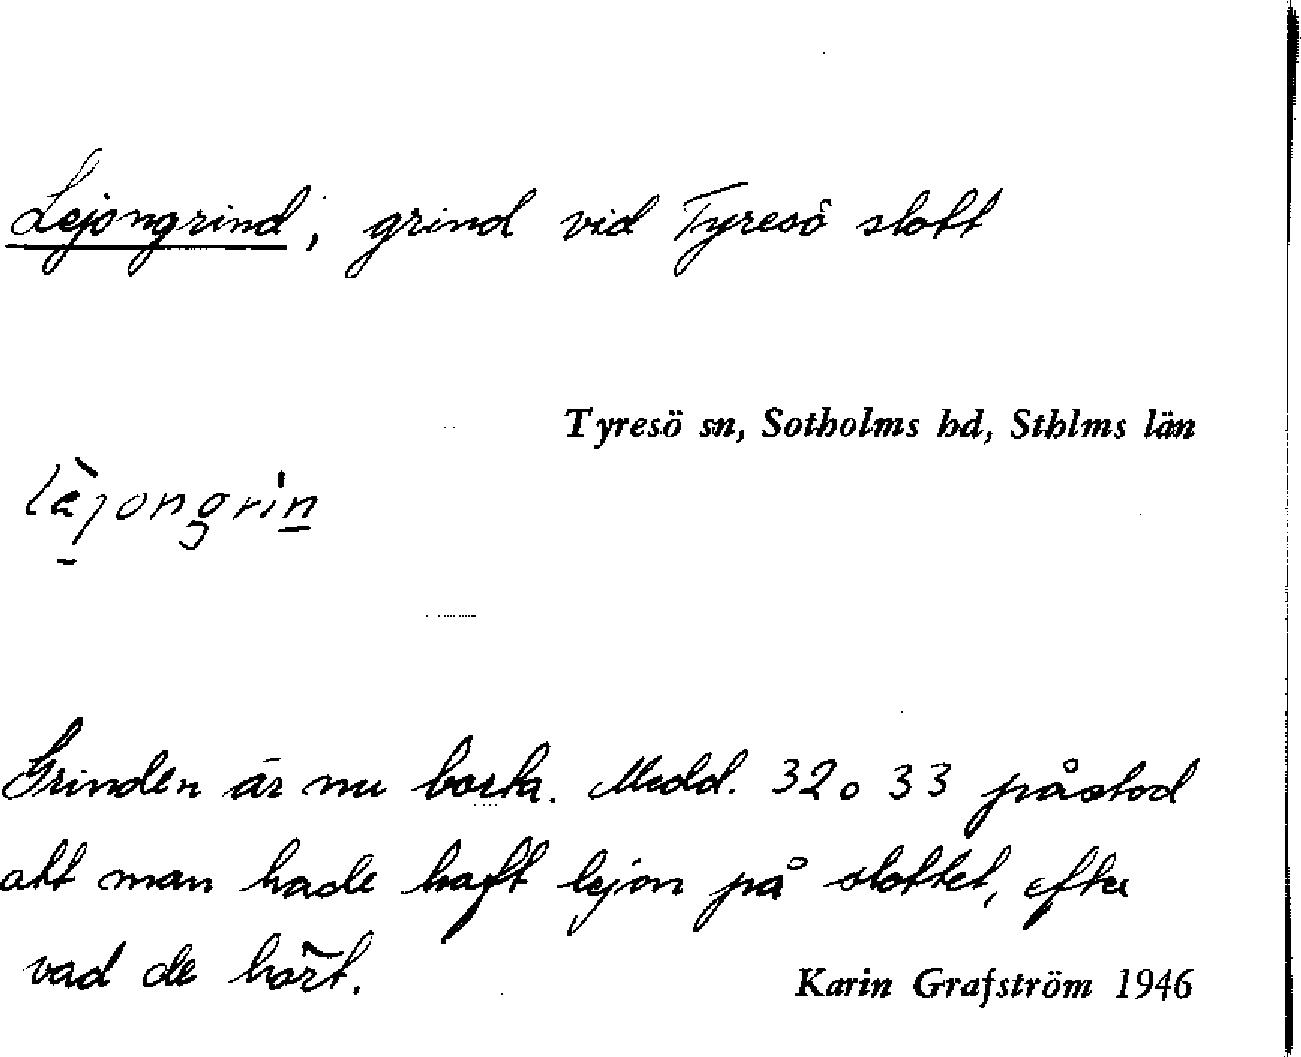 Lejongrind; grind vid Tyresö slott
Tyresö sn, Sotholms hd, Sthlms län
lèjongrin
Grinden är nu borta. Medd. 32 o 33 påstod
att man hade haft lejon på slottet, efter
vad de hört.
Karin Grafström 1946